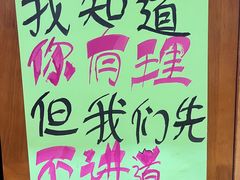 我知道
你有理
但我们先
不讲道